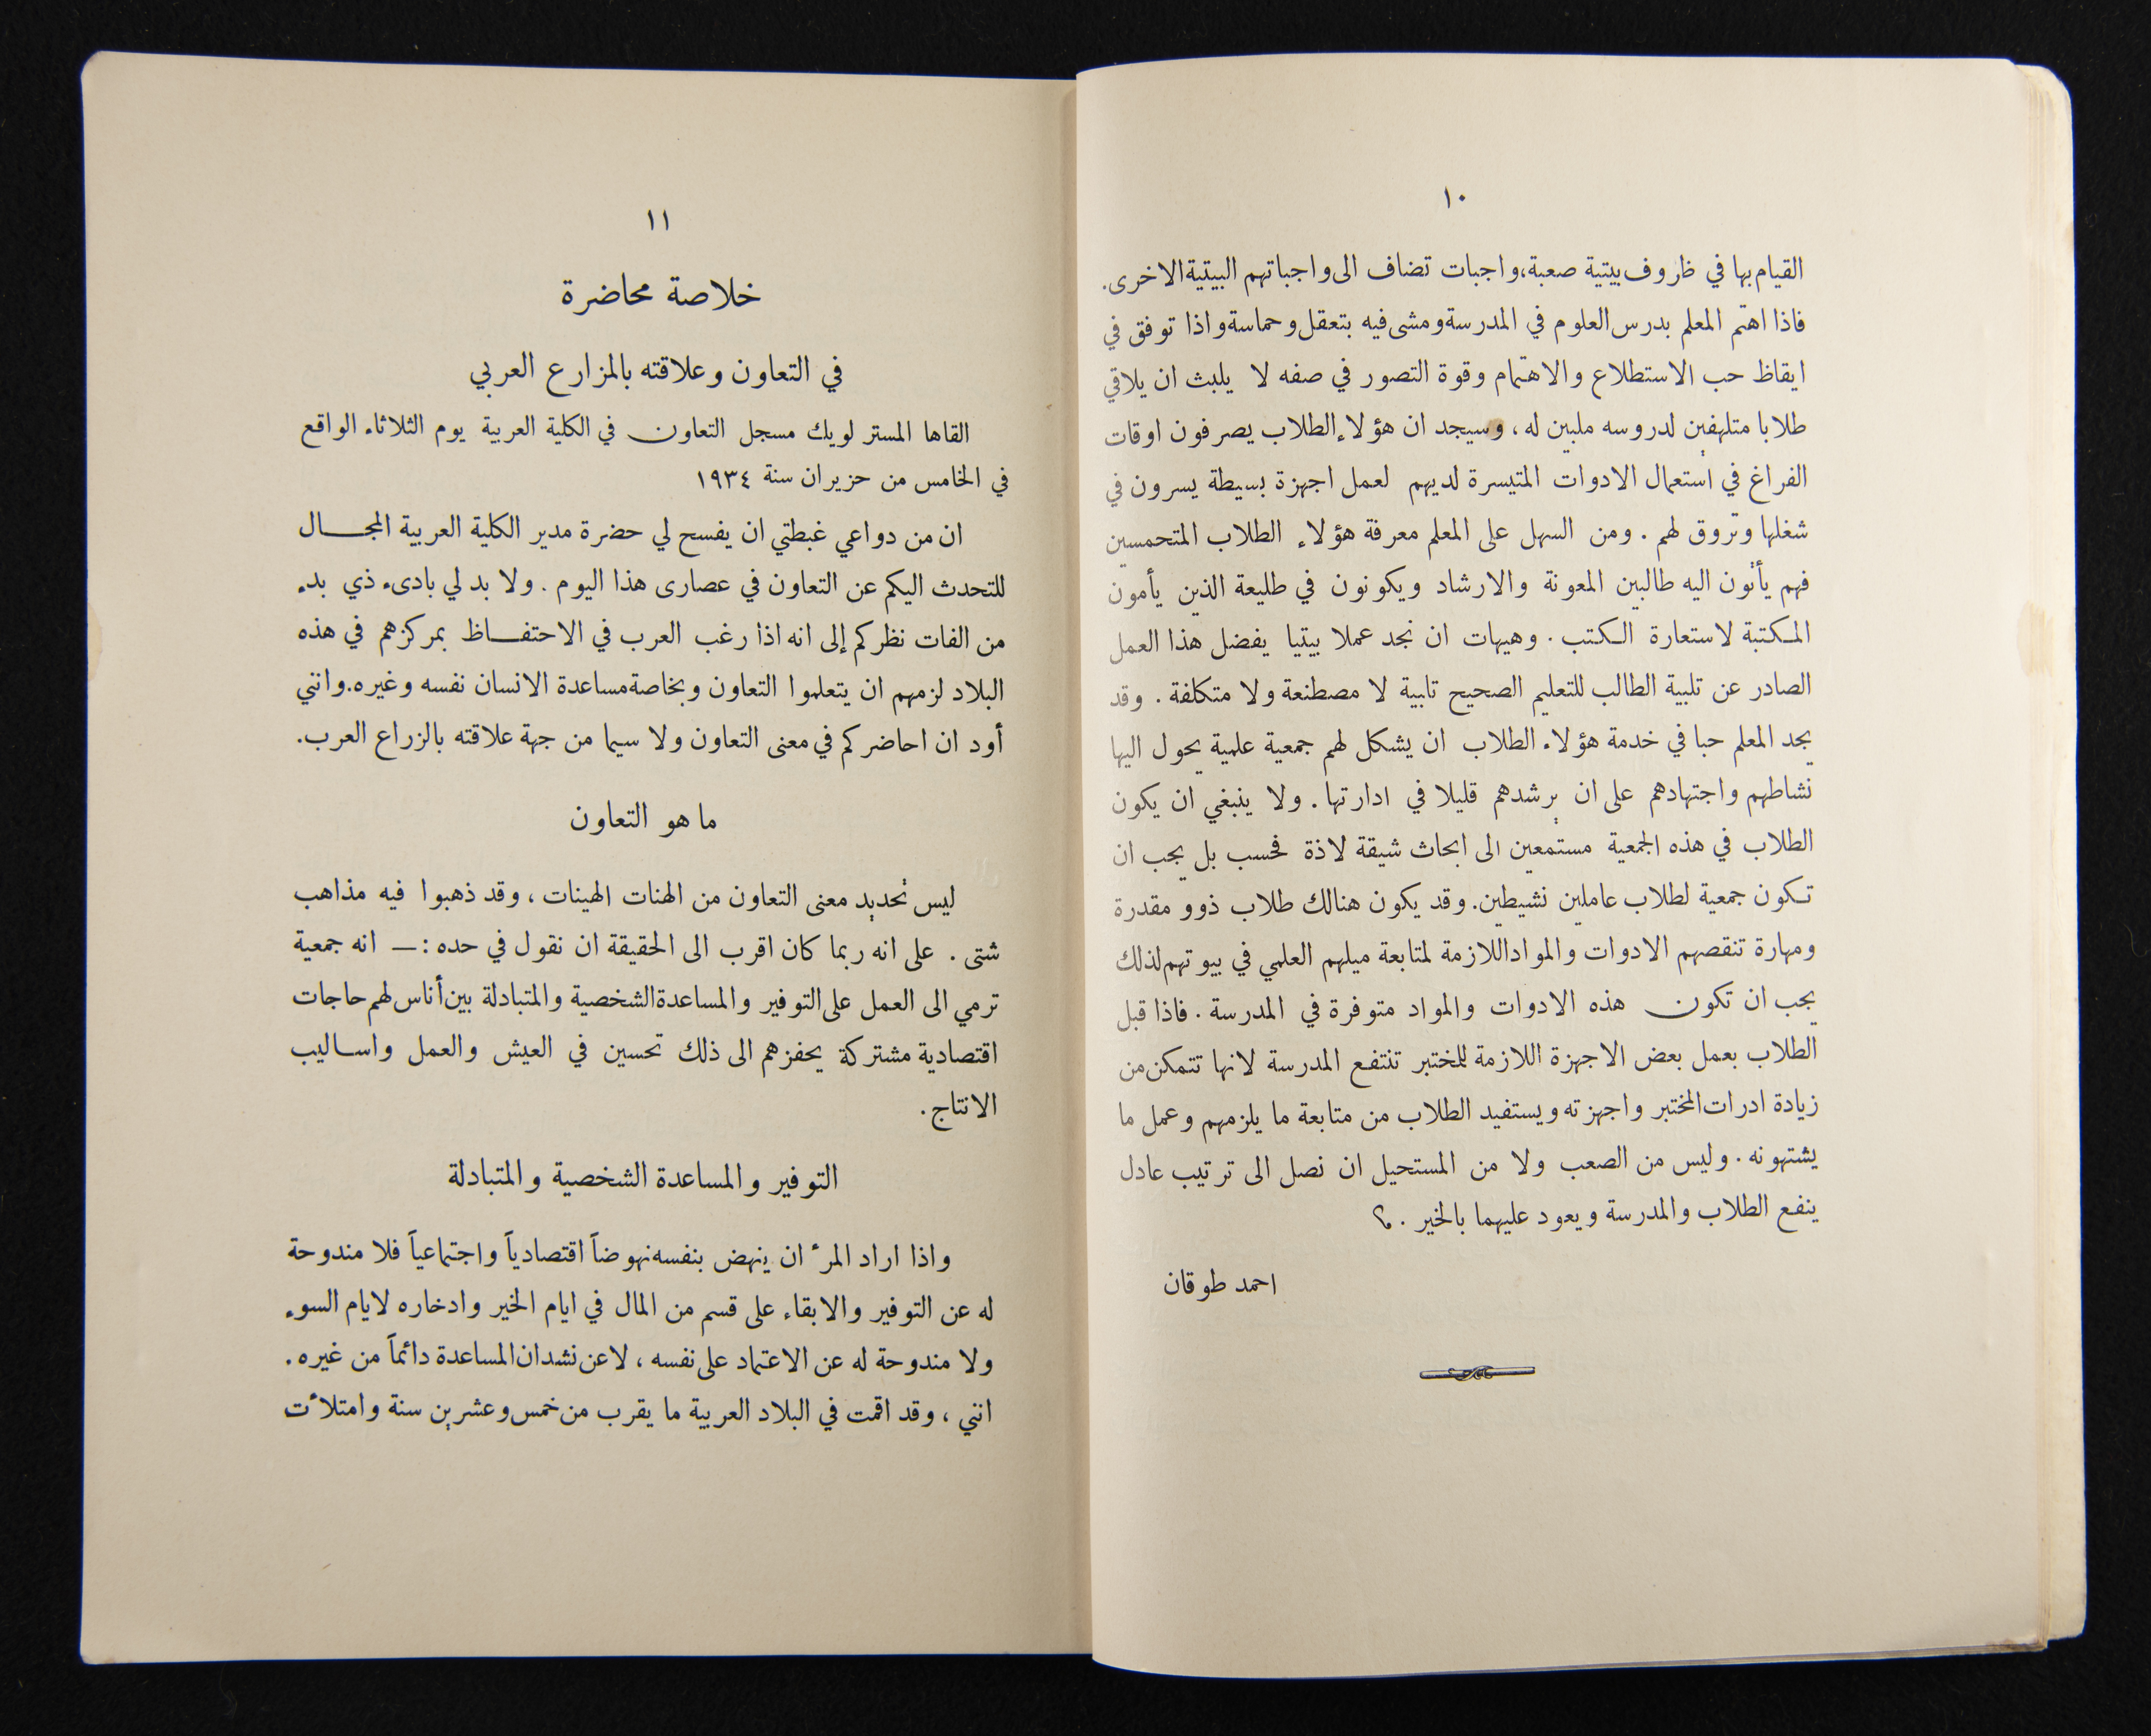 ١٠
القيام بها في ظروف بيتية صعبة، واجبات تضاف الى واجباتهم البيتية الاخرى.
فاذا اهتم المعلم بدرس العلوم في المدرسة ومشى فيه بتعقل وحماسة واذا توفق في
ايقاظ حب الاستطلاع والاهتمام وقوة التصور في صفه لا يلبث ان يلاقي
طلابا متلهفين لدروسه ملبين له ، وسيجد ان هؤلاء الطلاب يصرفون اوقات
الفراغ في استعمال الادوات المتيسرة لديهم لعمل اجهزة بسيطة يسرون في
شغلها وتروق لهم . ومن السهل على المعلم معرفة هؤلاء الطلاب المتحمسين
فهم يأتون اليه طالبين المعونة والارشاد ويكونون في طليعة الذين يأمون
المكتبة لاستعارة الكتب . وهيهات ان نجد عملا بيتيا يفضل هذا العمل
الصادر عن تلبية الطالب للتعليم الصحيح تابية لا مصطنعة ولا متكلفة . وقد
يجد المعلم حبا في خدمة هؤلاء الطلاب ان يشكل لهم جمعية علمية يحول اليها
نشاطهم واجتهادهم على ان يرشدهم قليلا في ادارتها . ولا ينبغي ان يكون
الطلاب في هذه الجمعية مستمعين الى ابحاث شيقة لاذة فحسب بل يجب ان
تكون جمعية لطلاب عاملين نشيطين. وقد يكون هنالك طلاب ذوو مقدرة
ومهارة تنقصهم الادوات والمواد اللازمة لمتابعة ميلهم العلمي في بيوتهم لذلك
يجب ان تكون هذه الادوات والمواد متوفرة في المدرسة . فاذا قبل
الطلاب بعمل بعض الاجهزة اللازمة للمختبر تنتفع المدرسة لانها تتمكن من
زيادة ادرات المختبر واجهزته ويستفيد الطلاب من متابعة ما يلزمهم وعمل ما
يشتهونه . وليس من الصعب ولا من المستحيل ان نصل الى ترتيب عادل
ينفع الطلاب والمدرسة ويعود عليهما بالخير .
احمد طوقان
١١
خلاصة محاضرة
في التعاون وعلاقته بالمزارع العربي
القاها المستر لويك مسجل التعاون في الكلية العربية يوم الثلاثاء الواقع
في الخامس من حزيران سنة ١٩٣٤
ان من دواعي غبطتي ان يفسح لي حضرة مدير الكلية العربية المجال
للتحدث اليكم عن التعاون في عصارى هذا اليوم . ولا بد لي بادىء ذي بدء
من الفات نظركم إلى انه اذا رغب العرب في الاحتفاظ بمركزهم في هذه
البلاد لزمهم ان يتعلموا التعاون وبخاصة مساعدة الانسان نفسه وغيره. وانني
أود ان احاضركم في معنى التعاون ولا سيما من جهة علاقته بالزراع العرب.
ما هو التعاون
ليس تحديد معنى التعاون من الهنات الهينات ، وقد ذهبوا فيه مذاهب
شتى . على انه ربما كان اقرب الى الحقيقة ان نقول في حده :— انه جمعية
ترمي الى العمل على التوفير والمساعدة الشخصية والمتبادلة بين أناس لهم حاجات
اقتصادية مشتركة يحفزهم الى ذلك تحسين في العيش والعمل واساليب
الانتاج .
التوفير والمساعدة الشخصية والمتبادلة
واذا اراد المرء ان ينهض بنفسه نهوضاً اقتصادياً واجتماعياً فلا مندوحة
له عن التوفير والابقاء على قسم من المال في ايام الخير وادخاره لايام السوء
ولا مندوحة له عن الاعتماد على نفسه ، لا عن نشدان المساعدة دائماً من غيره .
انني ، وقد اقمت في البلاد العربية ما يقرب من خمس وعشرين سنة وامتلأت